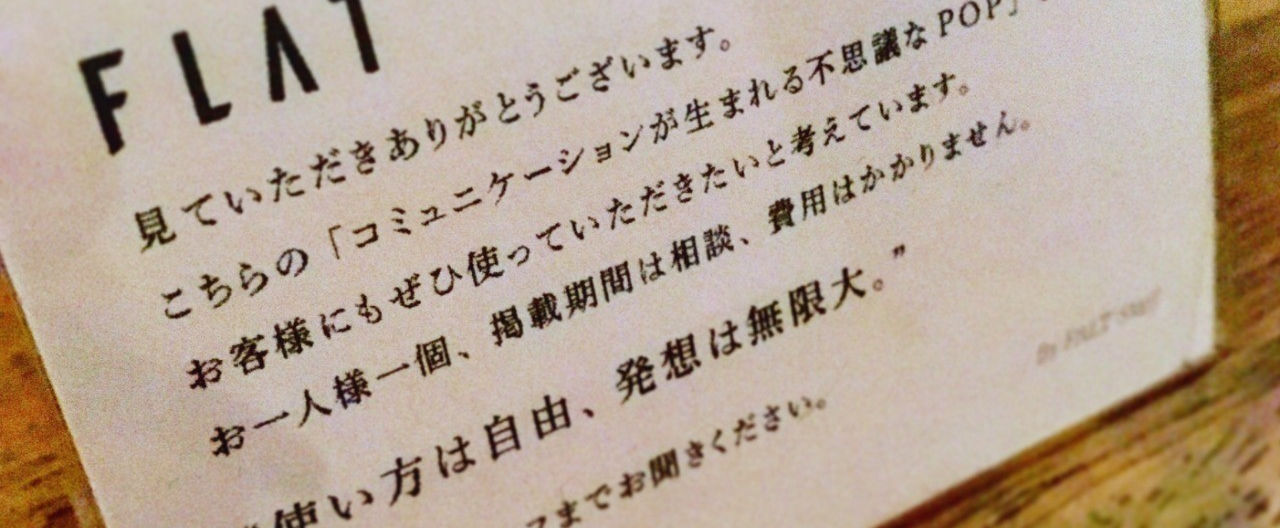 FLAT
見ていただきありがとうございます。
こちらの「コミュニケーションが生まれる不思議なPOP」
お客様にもぜひ使っていただきたいと考えています。
お一人様一個、掲載期間は相談、費用はかかりません。
使い方は自由、発想は無限大。”
までお聞きください。